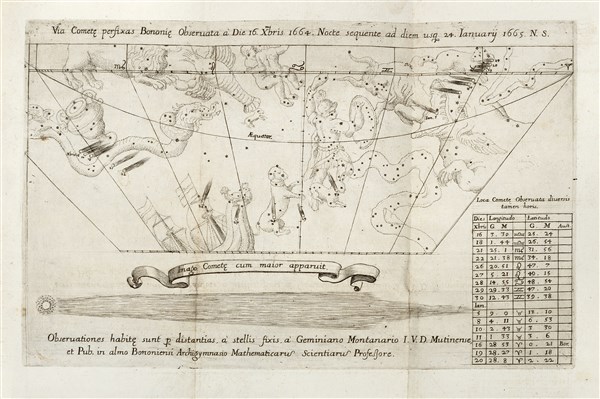 Via Cometę per fixas Bononię Observata a Die 16. Xbris 1664. Nocte sequente ad diem usq. 24. Ianuarij 1665. N. S.
Æquator
Imago Cometę cum maior apparuit.
Loca Cometę Observata diversis
tamen horis.
Dies Longitudo Latitudo
Xbris G M G. M. Aust.
16 7. 30
18 1. 44 26. 54
21 25. 1 31. 56
22 21. 38 34. 18
26 20. 51 47. 7
27 5. 21 49. 15
28 48. 54
29 29. 33 47. 20
30 12. 43 39. 38
Ian.
5 9. 0 13. 10
8 4. 11 6. 53
10 2. 43 3 30
11 1. 33 3. 6
16 28 53 0. 21 Bor.
19 28. 27 1. 18
20 28. 8 2. 22
Observationes habitę sunt p distantias, a stellis fixis, a Geminiano Montanario I. V. D. Mutinense,
et Pub. in almo Bononiensi Archigymnasio Mathematicarū Scientiarū Professore.